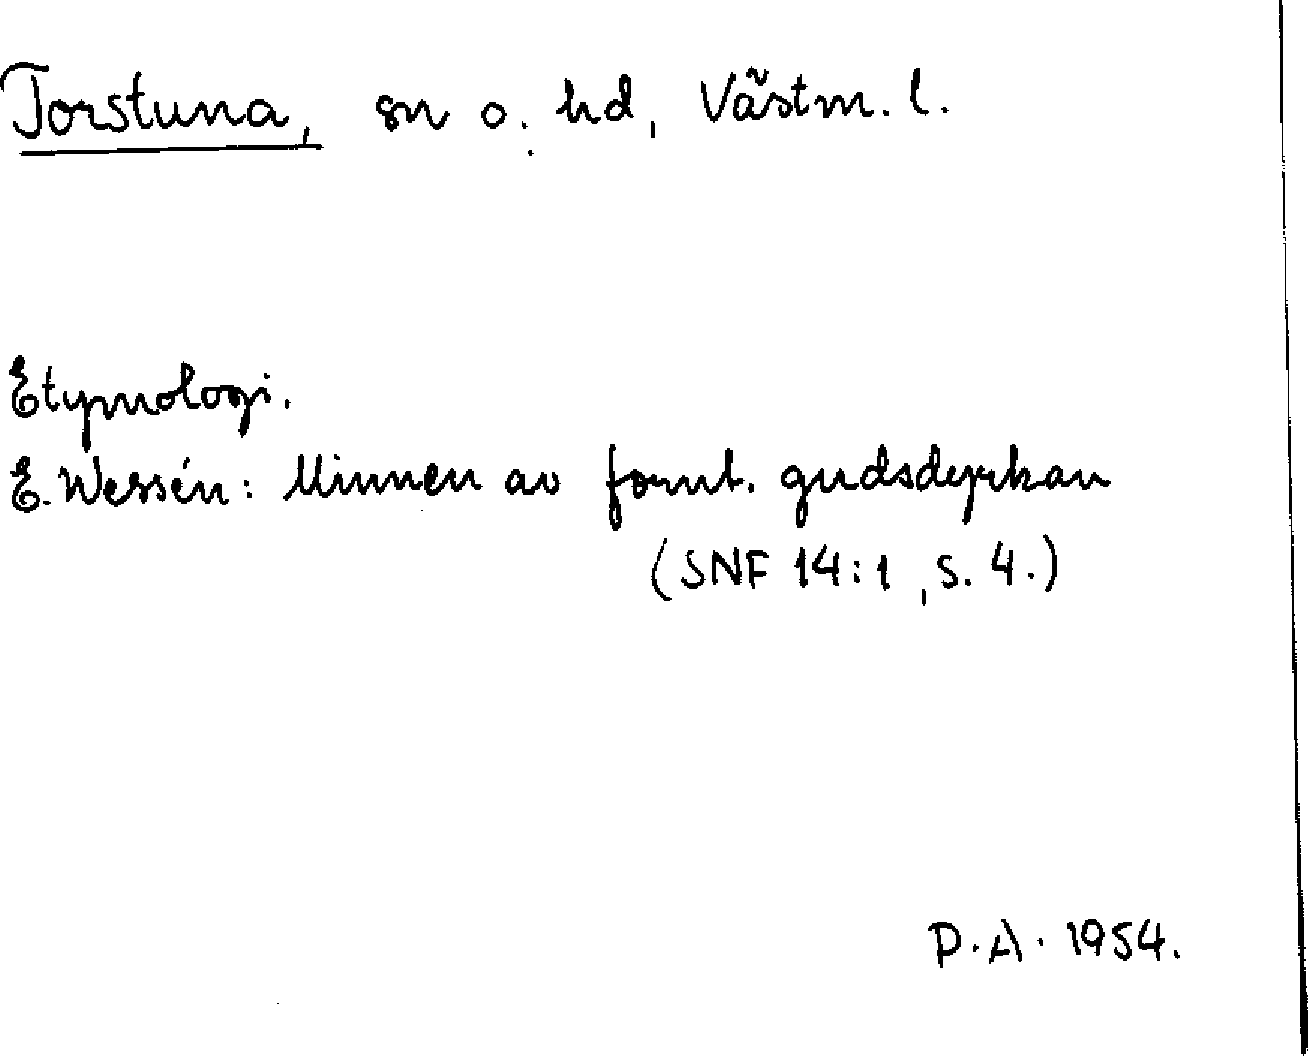 Torstuna, sn o. hd, Västm. l.
Etymologi.
E. Wessén: Minnen av fornt. gudsdyrkan
(SNF 14:1, s. 4.)
P.A. 1954.